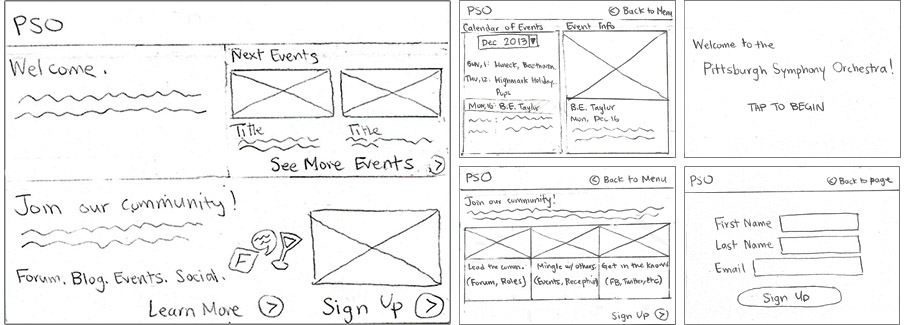 PSO
Welcome.
Next Events
Title
Title
See More Events
Join our community!
Forum. Blog. Events. Social.
F
Learn More
Sign Up
PSO
Back to Menu
Calendar of Events
Event Info
Dec 2013
Sun, 1: Honeck, Beethoven.
Thu, 12: Highmark Holiday
Pops
Mon, 16: B.E. Taylor
B.E. Taylor
Mon, Dec 16
Welcome to the
Pittsburgh Symphony Orchestra!
TAP TO BEGIN
PSO
Back to Menu
Join our community!
Lead the comm.
(Forum, Roles)
Mingle w/ others.
(Events, Reception)
Get in the know.
(FB, Twitter, Etc)
Sign Up
PSO
Back to page
First Name
Last Name
Email
Sign Up